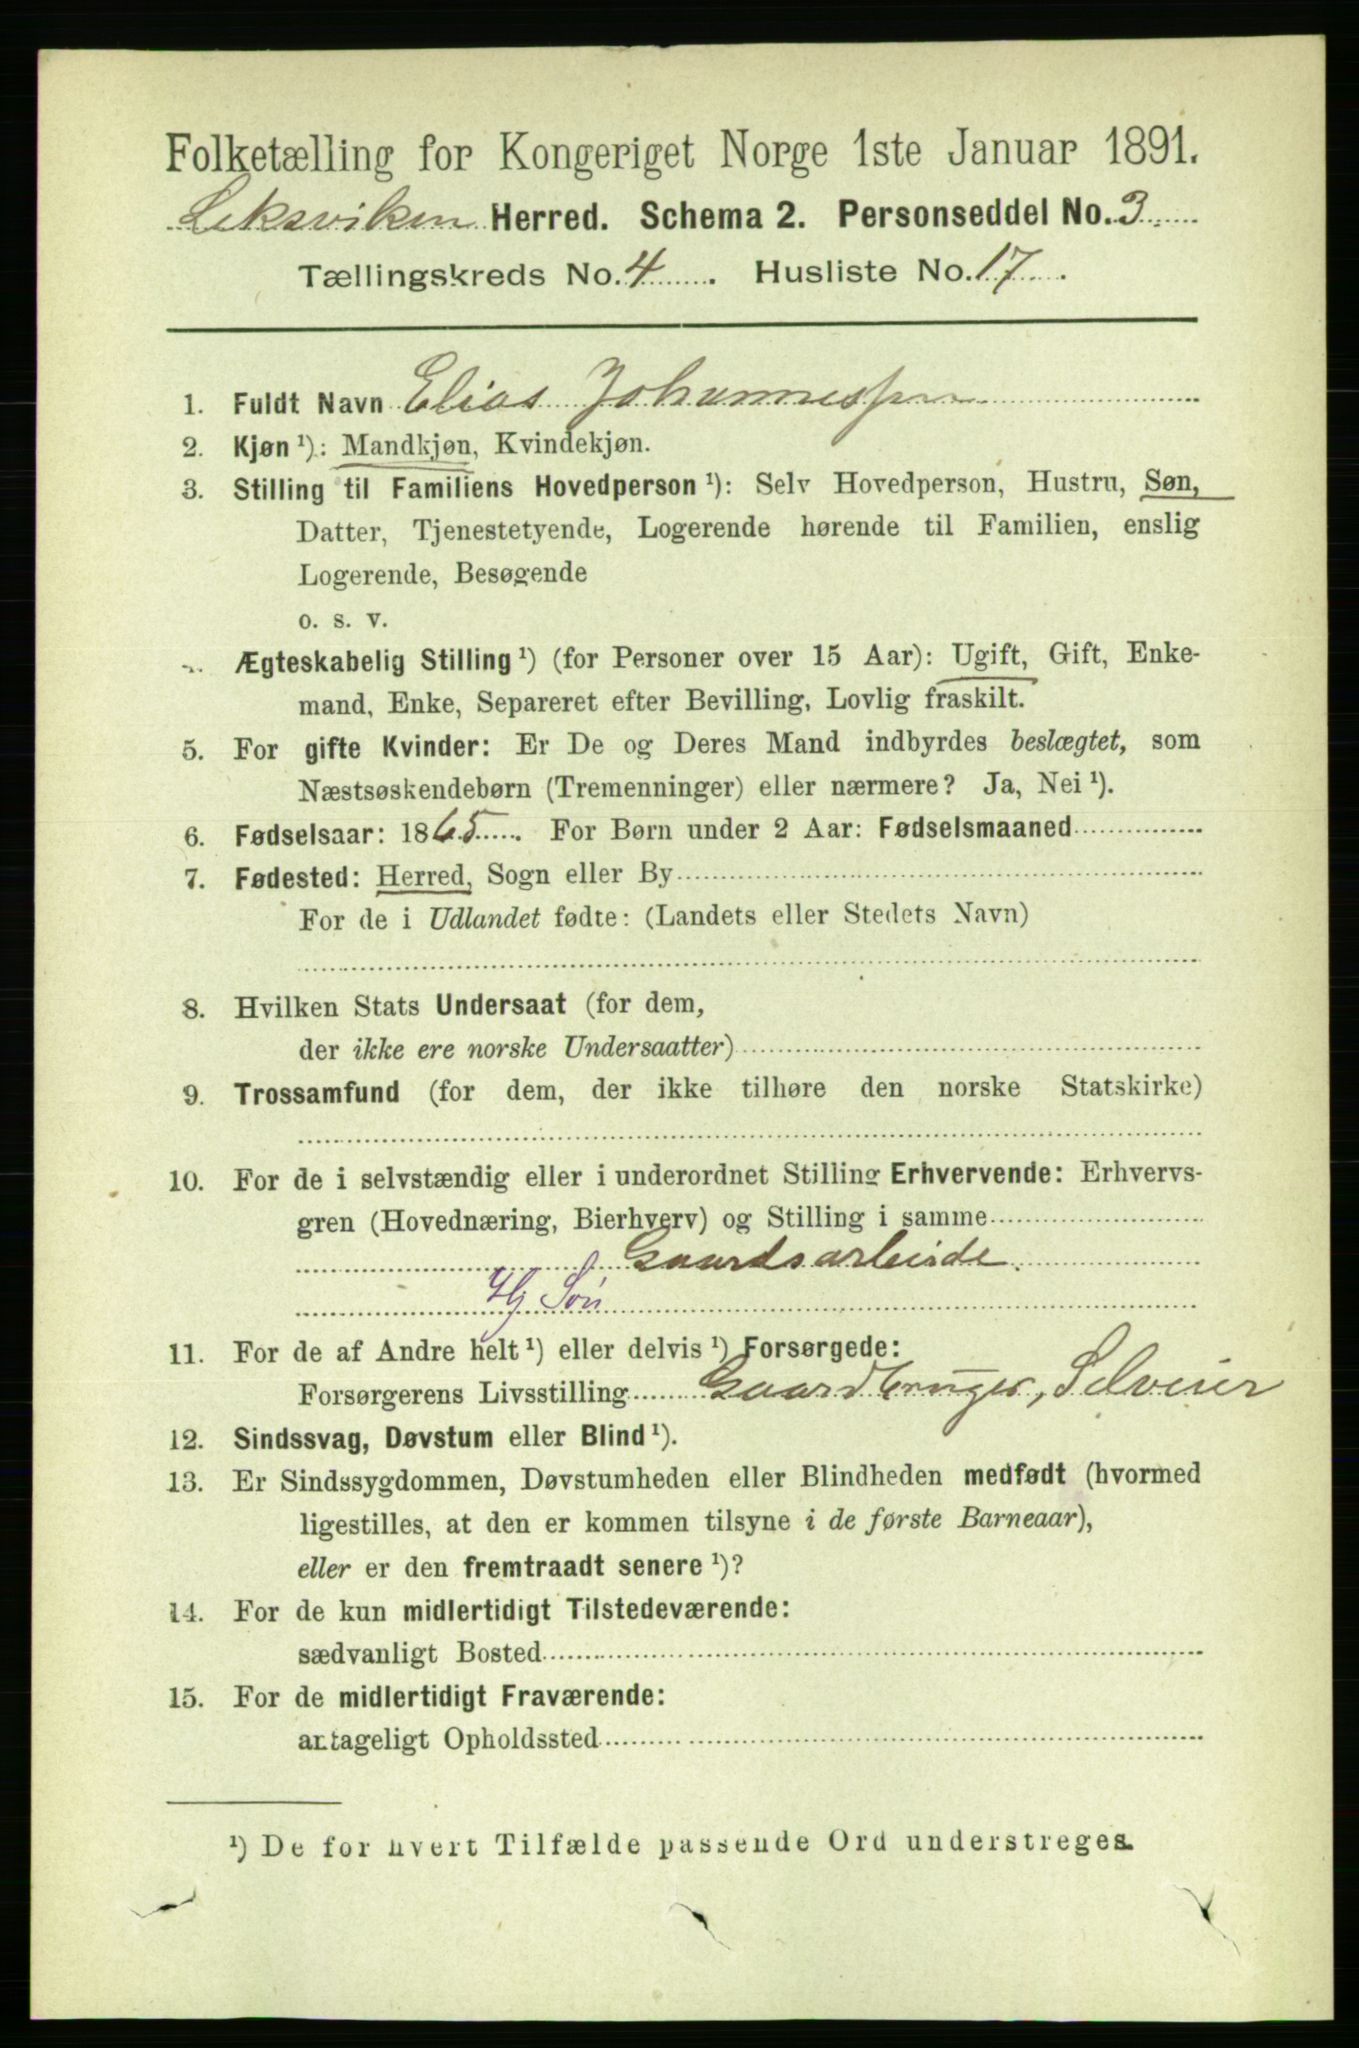 Folketælling for Kongeriget Norge 1ste Januar 1891.
Leksviken Herred. Schema 2. Personseddel No. 3
Tællingskreds No. 4. Husliste No. 17.
1. Fuldt Navn Elias Johannessen
2. Kjøn ¹): Mandkjøn, Kvindekjøn.
3. Stilling til Familiens Hovedperson ¹): Selv Hovedperson, Hustru, Søn,
Datter, Tjenestetyende, Logerende hørende til Familien, enslig
Logerende, Besøgende
o. s. v.
Ægteskabelig Stilling ¹) (for Personer over 15 Aar): Ugift, Gift, Enke-
mand, Enke, Separeret efter Bevilling, Lovlig fraskilt.
5. For gifte Kvinder: Er De og Deres Mand indbyrdes beslægtet, som
Næstsøskendebørn (Tremenninger) eller nærmere? Ja, Nei ¹).
6. Fødselsaar: 1865. For Børn under 2 Aar: Fødselsmaaned
7. Fødested: Herred, Sogn eller By
For de i Udlandet fødte: (Landets eller Stedets Navn)
8. Hvilken Stats Undersaat (for dem,
der ikke ere norske Undersaatter)
9. Trossamfund (for dem, der ikke tilhøre den norske Statskirke)
10. For de i selvstændig eller i underordnet Stilling Erhvervende: Erhvervs-
gren (Hovednæring, Bierhverv) og Stilling i samme
Gaardsarbeide.
Hj Søn
11. For de af Andre helt ¹) eller delvis ¹) Forsørgede:
Forsørgerens Livsstilling Gaardbruger, Selveier
12. Sindssvag, Døvstum eller Blind ¹).
13. Er Sindssygdommen, Døvstumheden eller Blindheden medfødt (hvormed
ligestilles, at den er kommen tilsyne i de første Barneaar),
eller er den fremtraadt senere ¹)?
14. For de kun midlertidigt Tilstedeværende:
sædvanligt Bosted
15. For de midlertidigt Fraværende:
antageligt Opholdssted
¹) De for hvert Tilfælde passende Ord understreges.